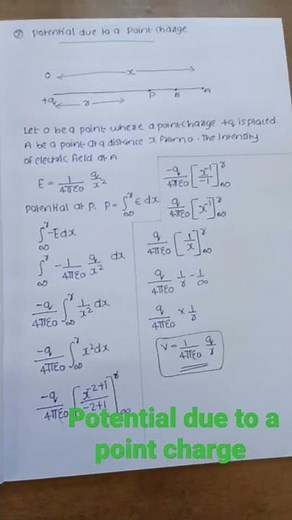 ⑦ Potential due to a Point charge
O x
+q r P B A
Let O be a point where a point charge +q is placed.
A be a point at a distance x from O. The intensity
of electric field at A
E = 1/4πε0 q/x²
Potential at P, P = ∫∞^r E dx
∫∞^r -E dx
∫∞^r - 1/4πε0 q/x² dx
-q/4πε0 ∫∞^r 1/x² dx
-q/4πε0 ∫∞^r x² dx
-q/4πε0 [x^-2+1/-2+1]∞^r
-q/4πε0 [x^-1/-1]∞^r
q/4πε0 [x^-1]∞^r
q/4πε0 [1/x]∞^r
q/4πε0 1/r - 1/∞
q/4πε0 × 1/r
V = 1/4πε0 q/r
Potential due to a
point charge